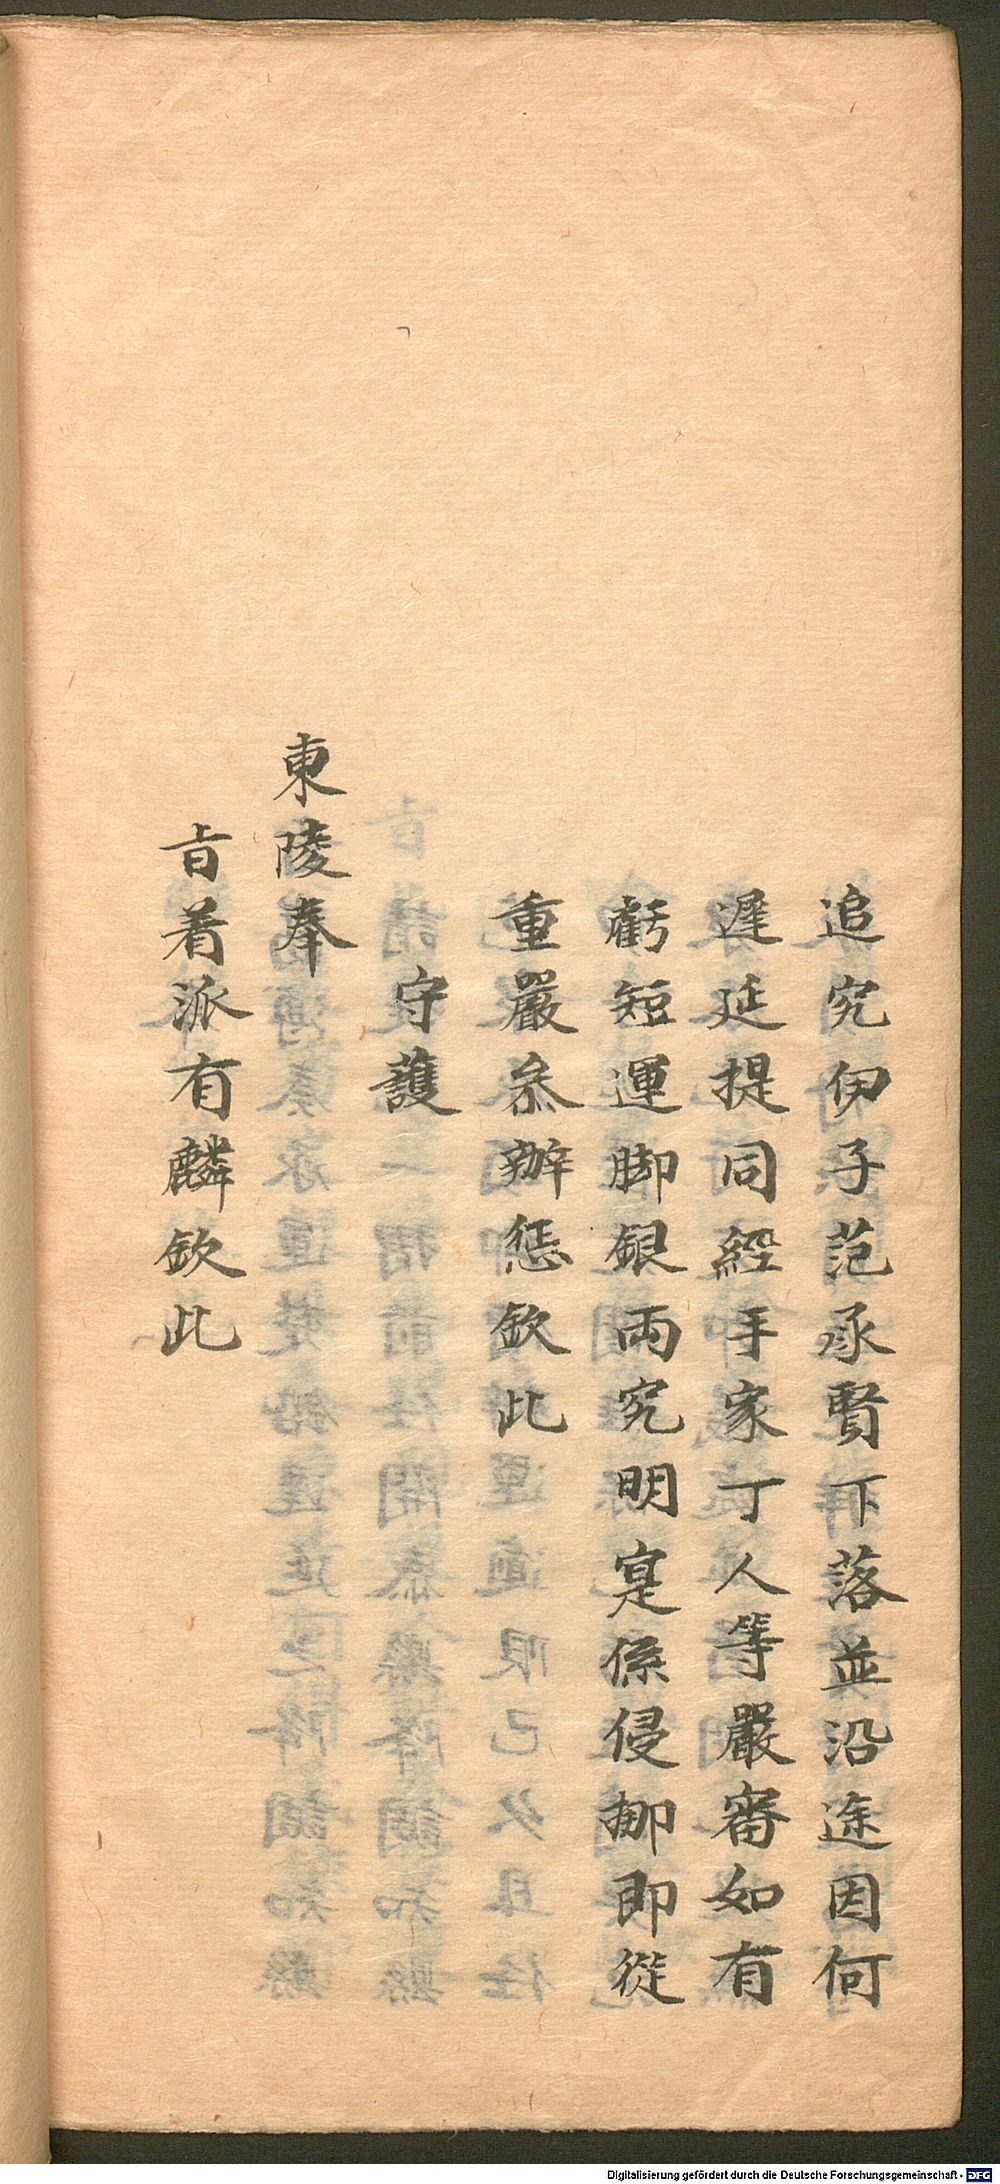 追究伊子范承賢下落並沿途因何
遲延提同經手家丁人等嚴審如有
虧短運脚銀兩究明寔係侵挪即從
重嚴叅辦懲欽此
守護
東陵奉
旨着派有麟欽此
Digitalisierung gefördert durch die Deutsche Forschungsgemeinschaft - DFG